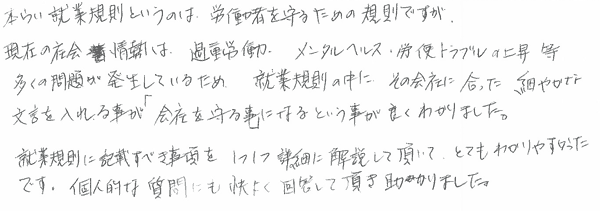 本らい就業規則というのは、労働者を守るための規則ですが、
現在の社会情勢は、過重労働、メンタルヘルス・労使トラブルの上昇等
多くの問題が発生しているため、就業規則の中に、その会社に合った細やかな
文言を入れる事が「会社を守る事」になるという事が良くわかりました。
就業規則に記載すべき事項を1つ1つ詳細に解説して頂いて、とてもわかりやすかった
です。個人的な質問にも快よく回答して頂き助かりました。